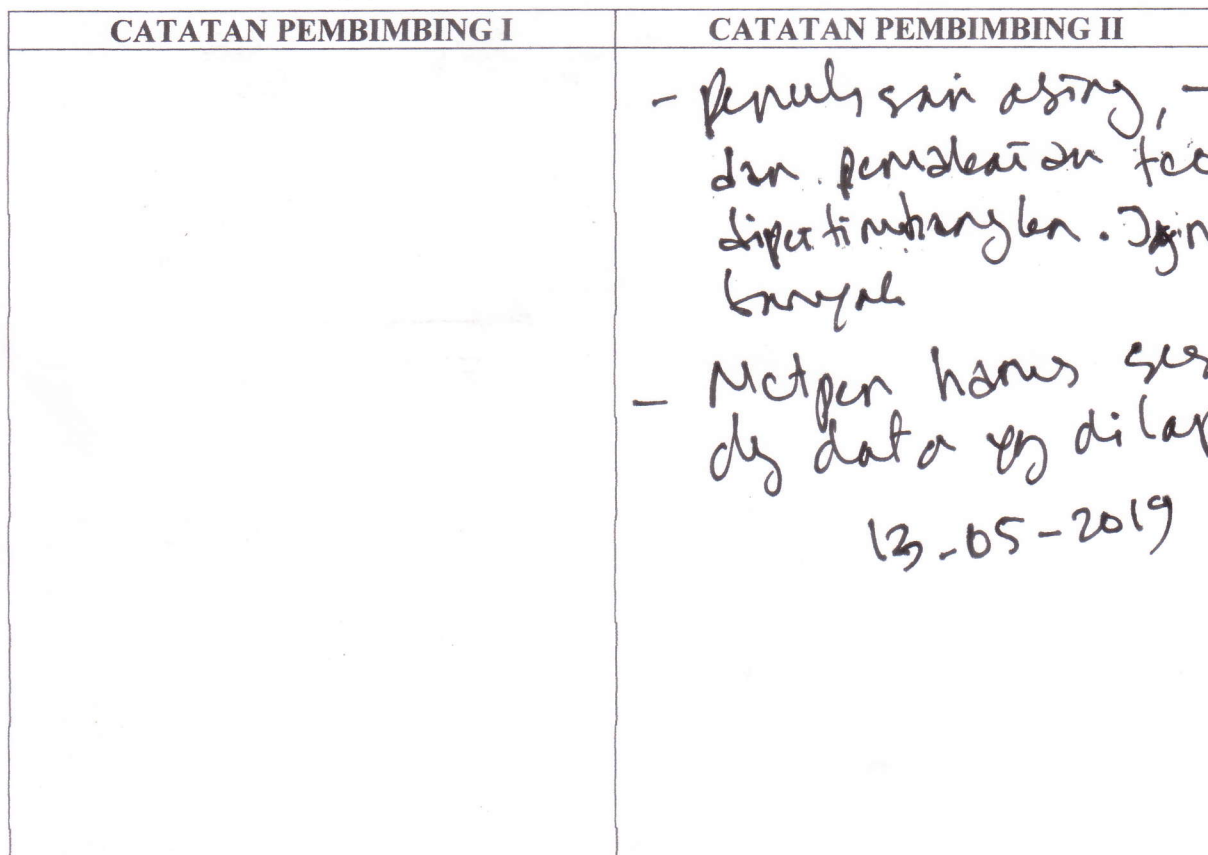 CATATAN PEMBIMBING I
CATATAN PEMBIMBING II
- Penulisan asing, -
dan pemakaian teo
dipertimbangkan. Jgn
banyak
- Metpen harus ses
dg data yg dilap
13-05-2019